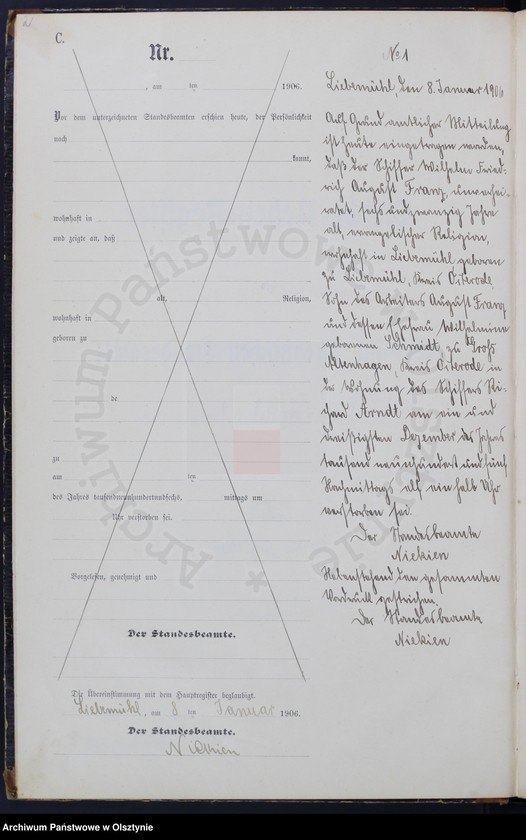 C.
Nr.
, am ten 1906.
Vor dem unterzeichneten Standesbeamten erschien heute, der Persönlichkeit
nach
kannt,
wohnhaft in
und zeigte an, daß
alt, Religion,
wohnhaft in
geboren zu
de
zu
am ten
des Jahres tausendneunhundertundsechs, mittags um
Uhr verstorben sei.
Vorgelesen, genehmigt und
Der Standesbeamte.
Die Übereinstimmung mit dem Hauptregister beglaubigt.
Liebemühl, am 8 ten Januar 1906.
Der Standesbeamte.
Niekien
No 1
Liebemühl, den 8. Januar 1906
Auf Grund amtlicher Mitteilung
ist heute eingetragen worden,
daß der Schiffer Wilhelm Fried-
rich August Franz, unverhei-
ratet, sechs und zwanzig Jahre
alt, evangelischer Religion,
wohnhaft in Liebemühl geboren
zu Liebemühl, Kreis Osterode,
Sohn des Arbeiters August Franz
und dessen Ehefrau Wilhelmine
geborenen Schmidt zu Groß
Altenhagen, Kreis Osterode in
der Wohnung des Schiffers Ri-
chard Arndt am ein und
dreißigsten Dezember des Jahres
tausend neunhundert und fünf
Nachmittags als ein halb Uhr
verstorben sei.
Der Standesbeamte
Niekien
Nebenstehend den gesammten
Vordruck gestrichen.
Der Standesbeamte
Niekien
Archiwum Państwowe w
Archiwum Państwowe w Olsztynie